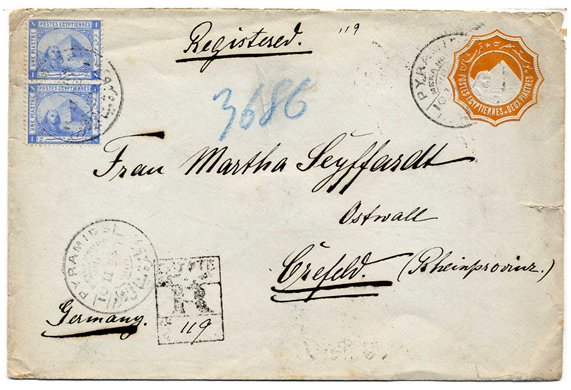 Registered.
119
3686
POSTES EGYPTIENNES
ONE PIASTRE
POSTES EGYPTIENNES
ONE PIASTRE
POSTES EGYPTIENNES DEUX PIASTRES
PYRAMIDES
Frau Martha Seyffardt
Ostwall
Crefeld. (Rheinprovinz.)
PYRAMIDES
R
119
Germany.